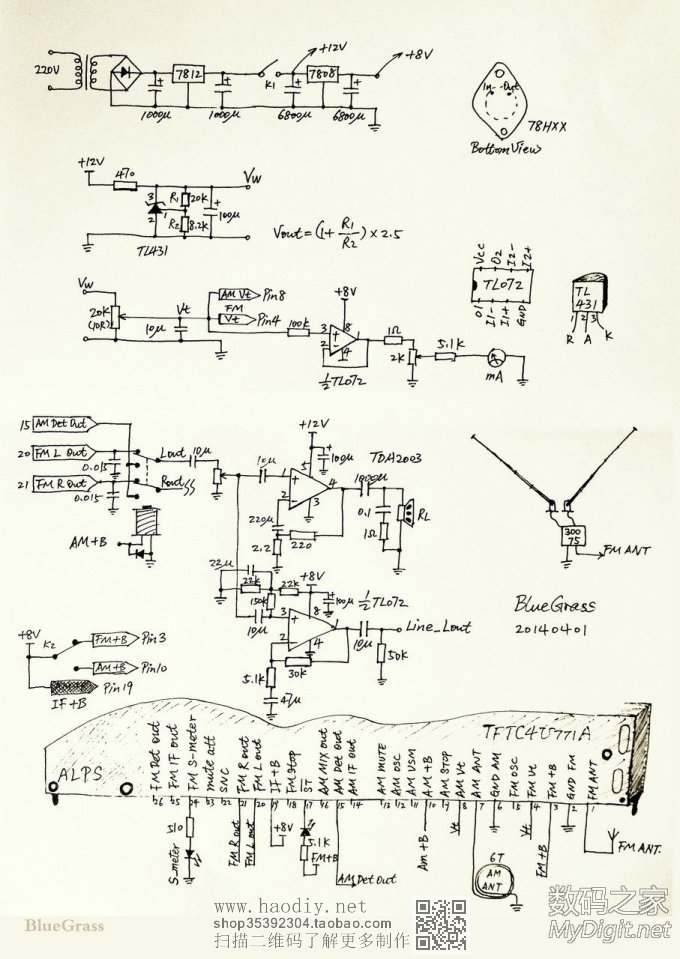 220V
7812
1000μ
1000μ
K1
+12V
7808
6800μ
6800μ
+8V
In
Out
78HXX
Bottom View
+12V
470
Vw
3
1
2
R1
20K
R2
8.2K
100μ
TL431
Vout=(1+R1/R2)×2.5
Vcc
O2
I2-
I2+
TL072
O1
I1-
I1+
GND
TL
431
1
2
3
R
A
K
Vw
20K
(10R)
10μ
Vt
AM Vt
Pin8
FM
Vt
Pin4
100k
+8V
3
2
8
1
4
½TL072
1Ω
2K
5.1K
mA
15
AM Det Out
20
FM L Out
21
FM R Out
0.015
0.015
Lout
Rout
10μ
AM+B
10μ
+12V
100μ
TDA2003
1
2
5
4
3
1000μ
0.1
1Ω
RL
220μ
220
2.2
22μ
22k
22k
150k
+8V
100μ
½TL072
10μ
3
2
8
1
4
10μ
Line_Lout
50K
30K
5.1K
47μ
300
75
FM ANT
BlueGrass
20140401
+8V
K2
FM+B
Pin3
AM+B
Pin10
Pin19
IF+B
ALPS
TFTC4U771A
FM Det out
FM IF out
FM S-meter
mute att
SNC
FM R out
FM L out
IF+B
FM Stop
ST
AM MIX out
AM Det out
AM IF out
AM MUTE
AM OSC
AM VSM
AM+B
AM Stop
AM Vt
AM ANT
GND AM
FM OSC
FM Vt
FM+B
GND FM
FM ANT
26
25
24
23
22
21
20
19
18
17
16
15
14
13
12
11
10
9
8
7
6
5
4
3
2
1
510
S_meter
FM R out
FM L out
+8V
5.1K
FM+B
AM Det Out
AM+B
Vt
6T
AM
ANT
Vt
FM+B
FM ANT.
www.haodiy.net
shop35392304.taobao.com
扫描二维码了解更多制作
BlueGrass
数码之家
MyDigit.net